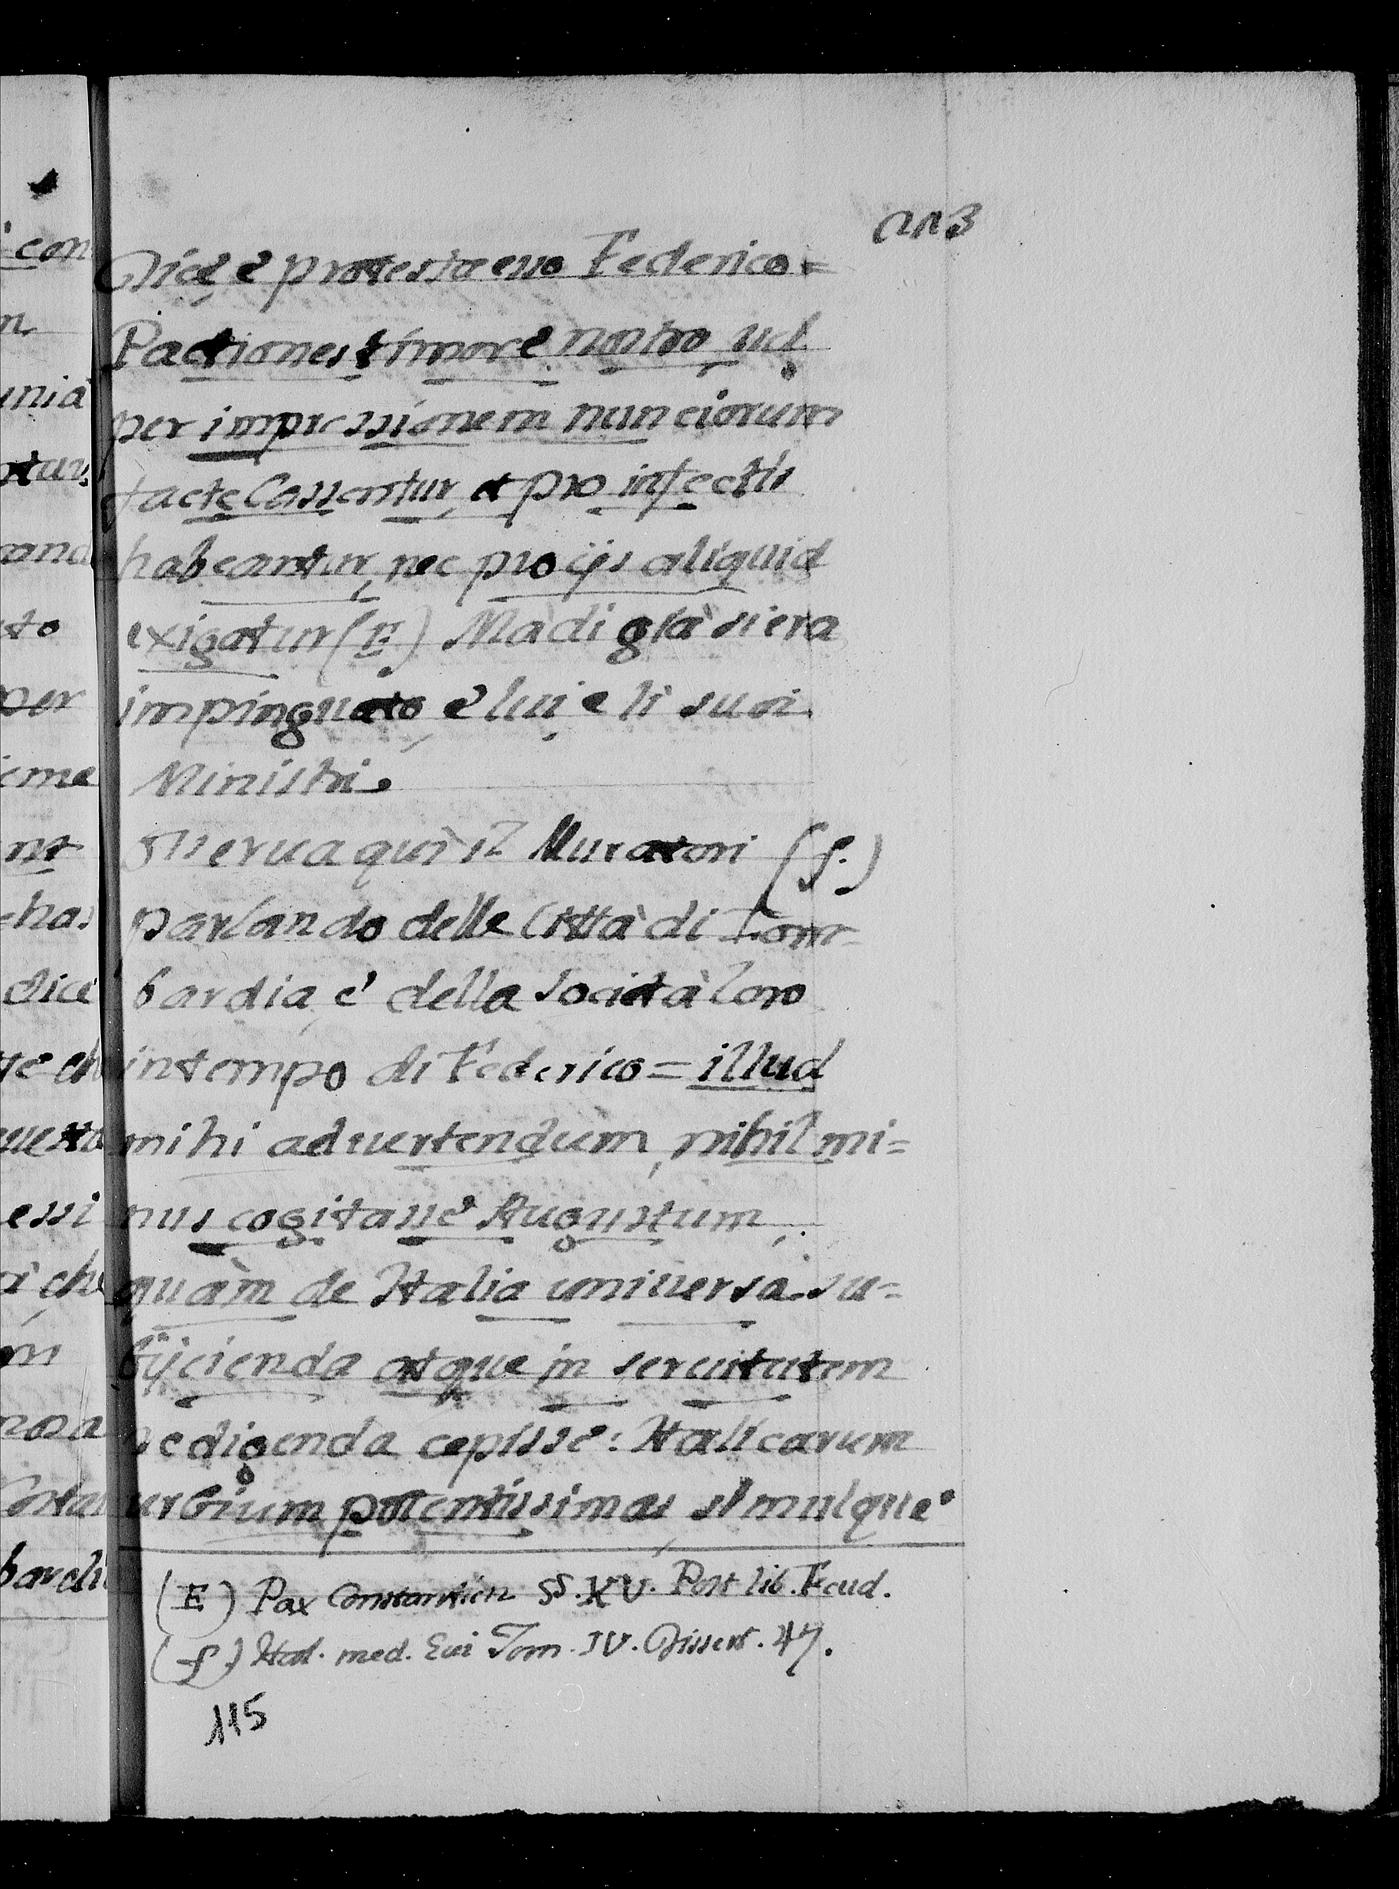 113
Dice è protesta esso Federico =
Pactiones timore nostro vel
per impressionem nunciorum
facte Cassentur, et pro infectis
habeantur, nec pro ijs aliquid
exigatur (E) Mà di già si era
impinguato, e' lui, e li suoi
Ministri.
Osserua quì il Muratori (f.)
parlando delle Città di Lom-
bardia, e' della Società loro
in tempo di Federico = illud
mihi aduertendum, nihil mi=
nus cogitasse Augustum,
quàm de Italia uniuersa su=
bijcienda atque in seruitutem
redigenda cepisse: Italicarum
urbium potentissimas, simulque
(E) Pax Constantien SS. XV. Post lib. Feud.
(f) Ital. med. Eui Tom. IV. Dissert. 47.
115